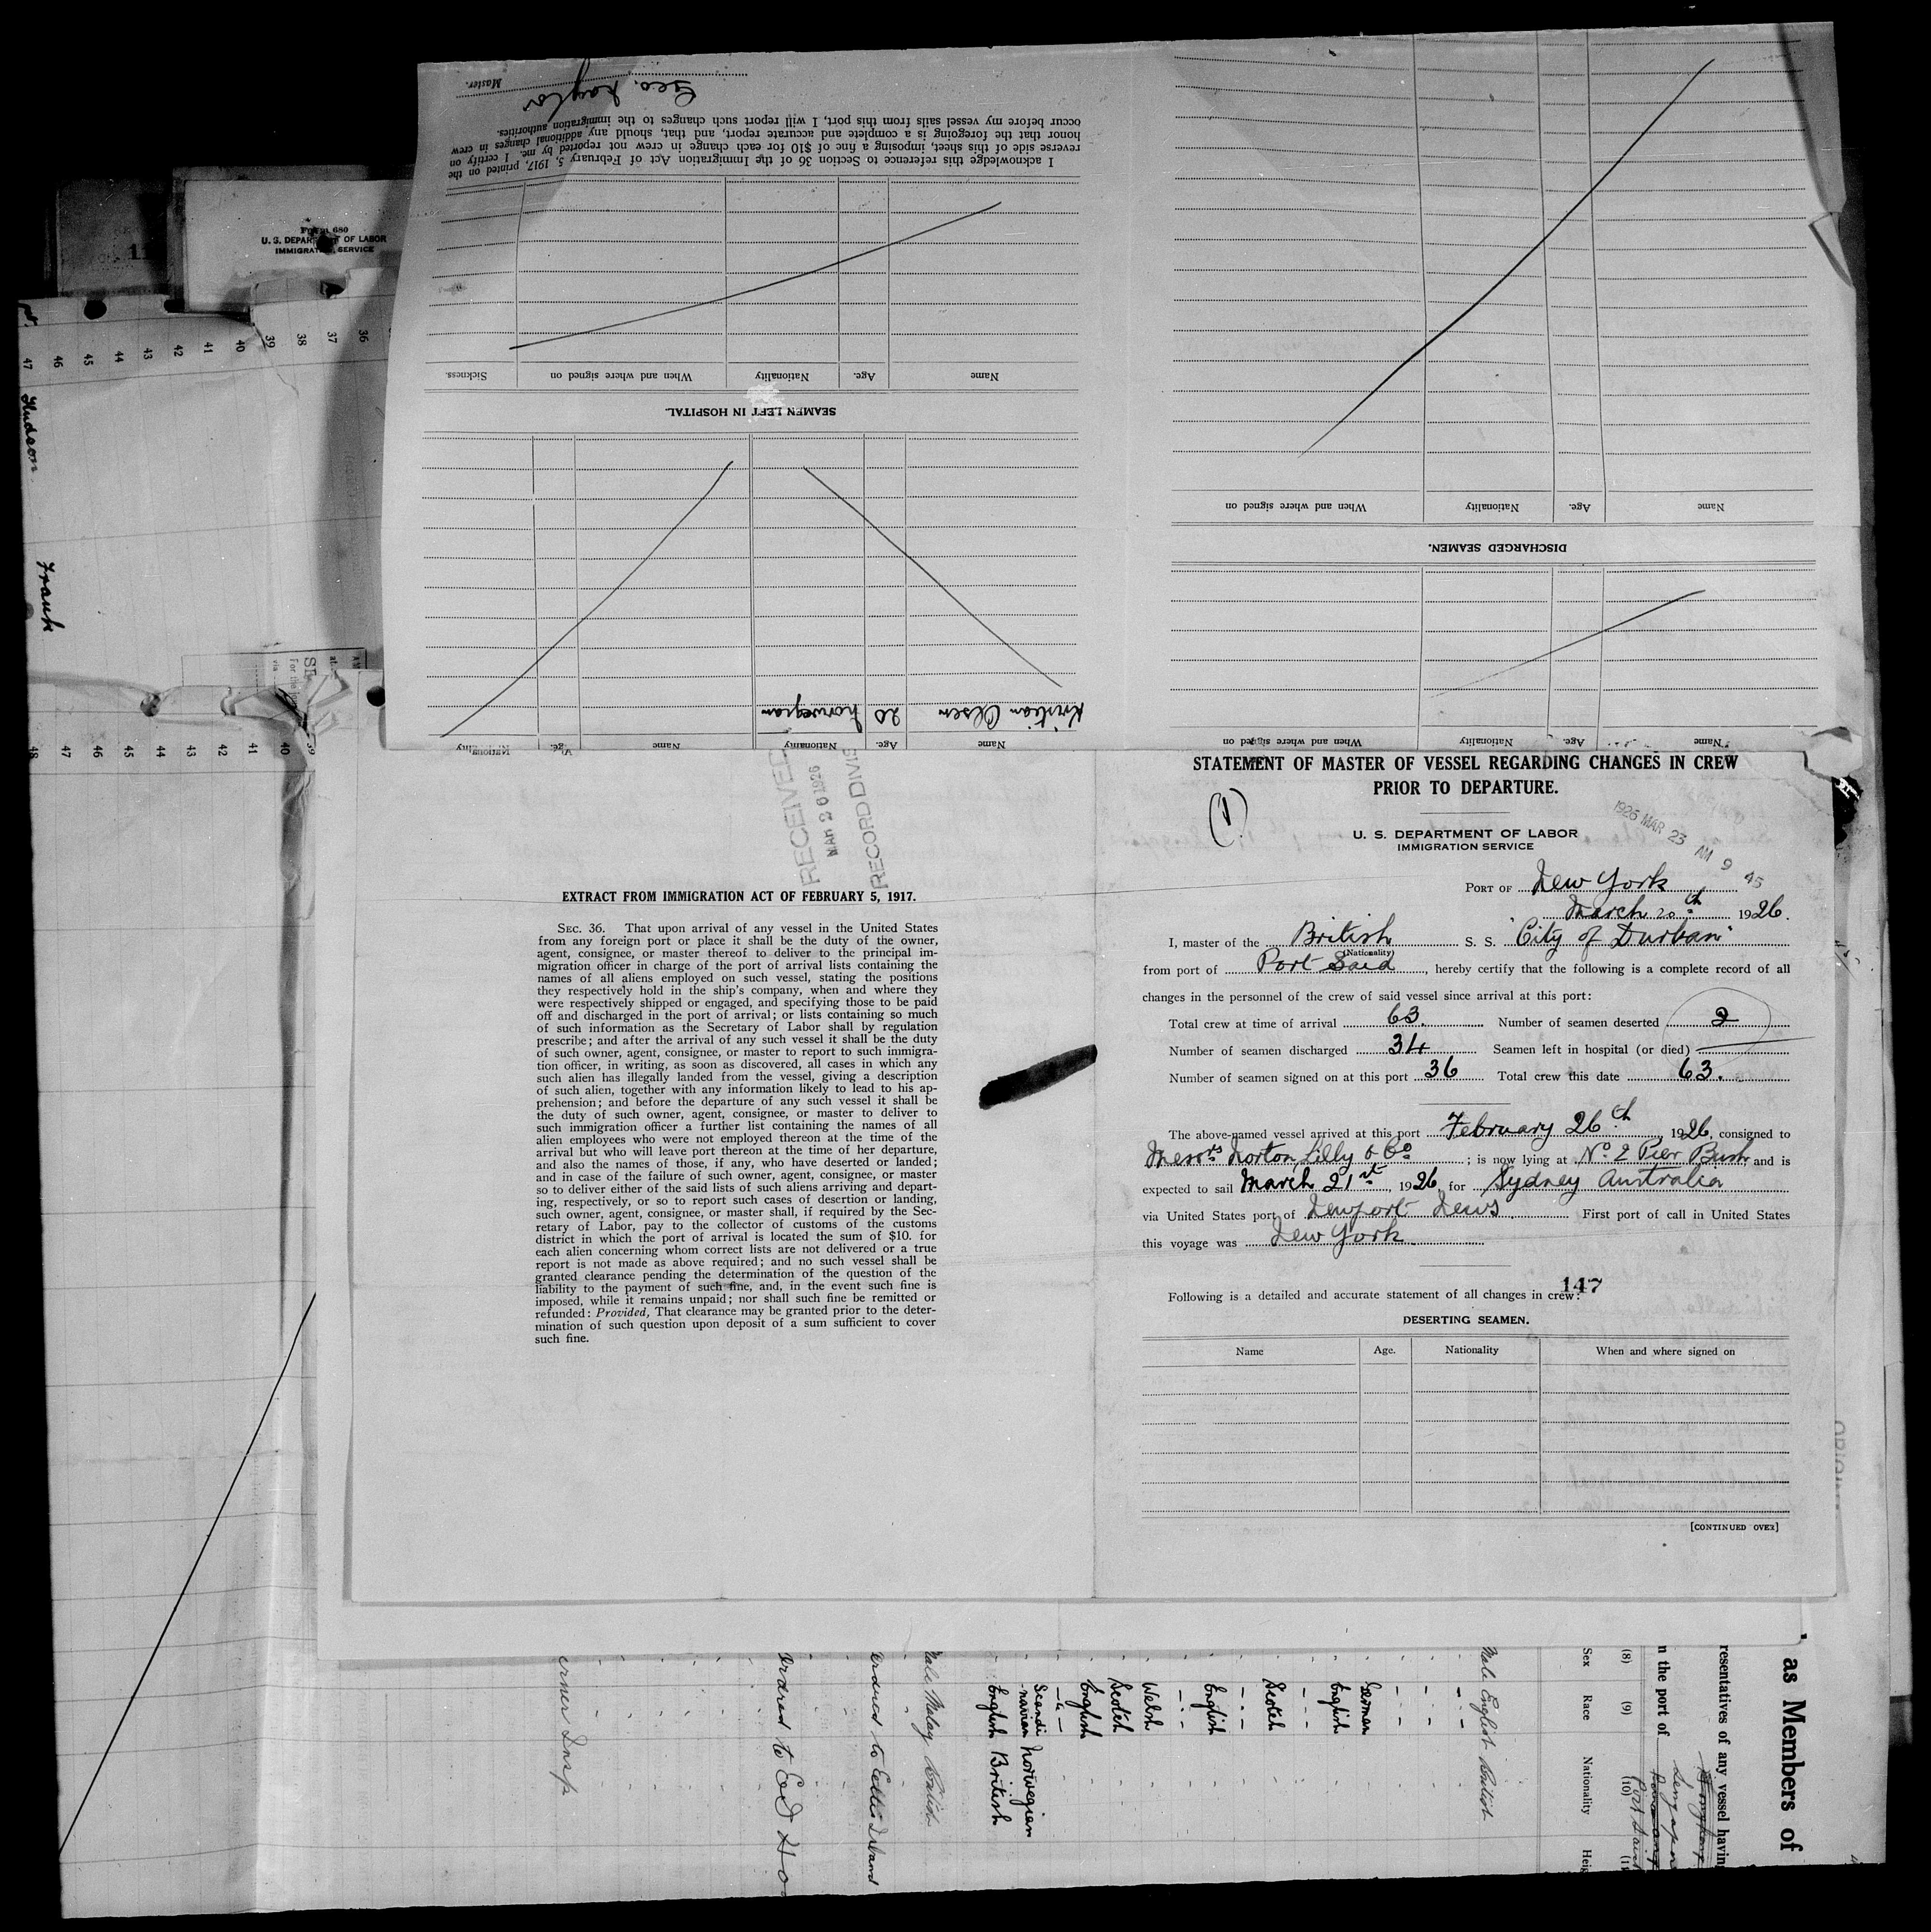 Form 680
U. S. DEPARTMENT OF LABOR
IMMIGRATION SERVICE
47 46 45 44 43 42 41 40 39 38 37 36
Hudson
Frank
48 47 46 45 44 43 42 41 40 39
Name Age. Nationality When and where signed on
DISCHARGED SEAMEN.
Name Age. Nationality When and where signed on
Name Age. Nationality Name Age. Nationality
Kristian Olsen 20 Norwegian
SEAMEN LEFT IN HOSPITAL.
Name Age. Nationality When and where signed on Sickness.
I acknowledge this reference to Section 36 of the Immigration Act of February 5, 1917, printed on the
reverse side of this sheet, imposing a fine of $10 for each change in crew not reported by me. I certify on
honor that the foregoing is a complete and accurate report, and that, should any additional changes in crew
occur before my vessel sails from this port, I will report such changes to the immigration authorities.
Geo. Naylor
Master.
RECEIVED
MAR 26 1926
RECORD DIVIS
EXTRACT FROM IMMIGRATION ACT OF FEBRUARY 5, 1917.
SEC. 36. That upon arrival of any vessel in the United States
from any foreign port or place it shall be the duty of the owner,
agent, consignee, or master thereof to deliver to the principal im-
migration officer in charge of the port of arrival lists containing the
names of all aliens employed on such vessel, stating the positions
they respectively hold in the ship's company, when and where they
were respectively shipped or engaged, and specifying those to be paid
off and discharged in the port of arrival; or lists containing so much
of such information as the Secretary of Labor shall by regulation
prescribe; and after the arrival of any such vessel it shall be the duty
of such owner, agent, consignee, or master to report to such immigra-
tion officer, in writing, as soon as discovered, all cases in which any
such alien has illegally landed from the vessel, giving a description
of such alien, together with any information likely to lead to his ap-
prehension; and before the departure of any such vessel it shall be
the duty of such owner, agent, consignee, or master to deliver to
such immigration officer a further list containing the names of all
alien employees who were not employed thereon at the time of the
arrival but who will leave port thereon at the time of her departure,
and also the names of those, if any, who have deserted or landed;
and in case of the failure of such owner, agent, consignee, or master
so to deliver either of the said lists of such aliens arriving and depart-
ing, respectively, or so to report such cases of desertion or landing,
such owner, agent, consignee, or master shall, if required by the Sec-
retary of Labor, pay to the collector of customs of the customs
district in which the port of arrival is located the sum of $10. for
each alien concerning whom correct lists are not delivered or a true
report is not made as above required; and no such vessel shall be
granted clearance pending the determination of the question of the
liability to the payment of such fine, and, in the event such fine is
imposed, while it remains unpaid; nor shall such fine be remitted or
refunded: Provided, That clearance may be granted prior to the deter-
mination of such question upon deposit of a sum sufficient to cover
such fine.
STATEMENT OF MASTER OF VESSEL REGARDING CHANGES IN CREW
PRIOR TO DEPARTURE.
(1)
1926 MAR 23 AM 9 45
U. S. DEPARTMENT OF LABOR
IMMIGRATION SERVICE
PORT OF New York
March 20th 1926.
I, master of the British S. S. "City of Durban"
(Nationality)
from port of Port Said, hereby certify that the following is a complete record of all
changes in the personnel of the crew of said vessel since arrival at this port:
Total crew at time of arrival 63. Number of seamen deserted 2
Number of seamen discharged 34 Seamen left in hospital (or died)
Number of seamen signed on at this port 36 Total crew this date 63.
The above-named vessel arrived at this port February 26th, 1926, consigned to
Messrs Norton Lilly & Co; is now lying at No. 2 Pier Bush and is
expected to sail March 21st, 1926, for Sydney Australia
via United States port of Newport News. First port of call in United States
this voyage was New York.
147
Following is a detailed and accurate statement of all changes in crew:
DESERTING SEAMEN.
Name Age. Nationality When and where signed on
[CONTINUED OVER]
as Members of
resentatives of any vessel having
n the port of
Singapore
Port Said
(8) (9) (10)
Sex Race Nationality Heig
Male English British
German
English
Scotch
English
Welsh
Scotch
English
Scandi
navian Norwegian
English British
Male Malay British